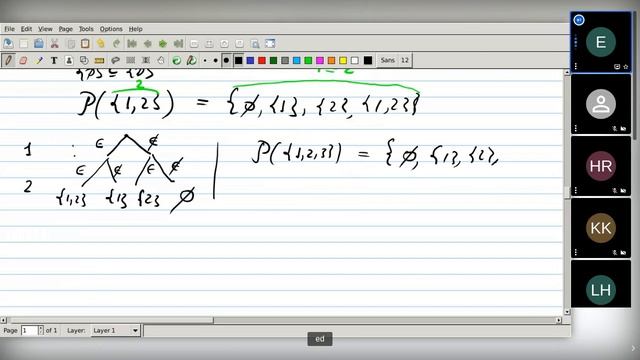 File Edit View Page Tools Options Help
Sans 12
P({1,2}) = {∅, {1}, {2}, {1,2}}
2
1 : ∈ ∉
P({1,2,3}) = {∅, {1}, {2},
∈ ∉ ∈ ∉
2 {1,2} {1} {2} ∅
Page 1 of 1 Layer: Layer 1
ed
E
HR
KK
LH